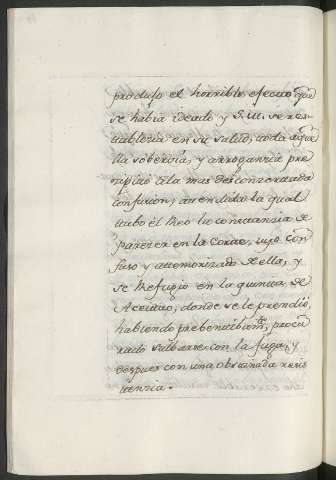 produjo el horrible efecto que
se habia ideado y S.M. se res-
tableria en su salud, toda aque
lla sobervia, y arrogancia pre
cipitó á la mas desconcertada
confusion, en
tubo el Reo la constancia de
parezer en la Corte, con
fuso y atemorizado de ella, y
se Refugio en la quinta de
Aceitao, donde se le prendió,
habiendo prebentibam.te procu
rado salbarse con la fuga, y
despues con una obstinada resis
tenzia.